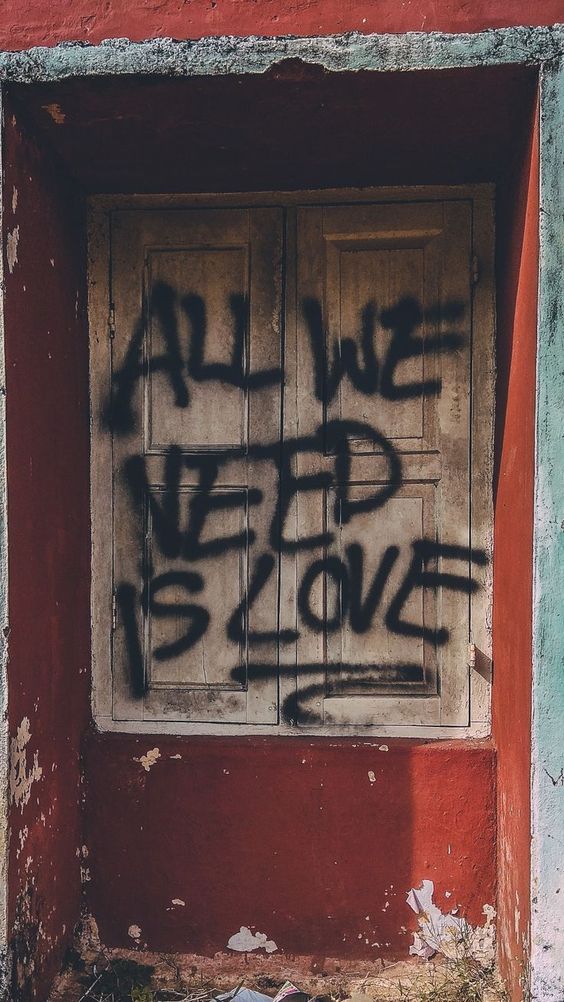 ALL WE
NEED
IS LOVE